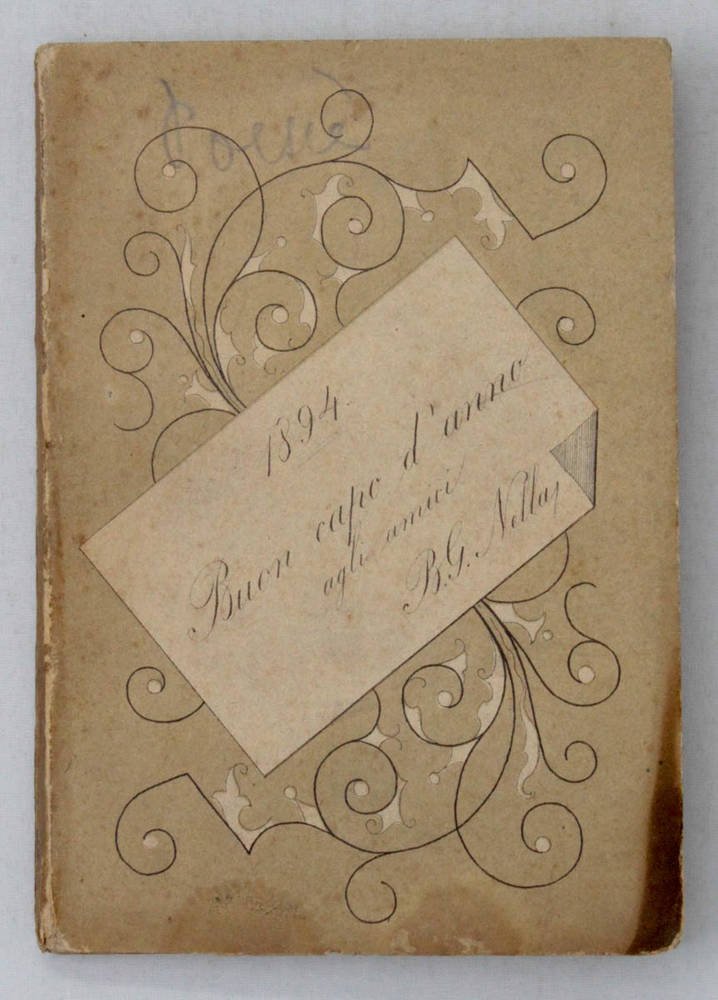 1894.
Buon capo d'anno
agli amici
B. G. Nella